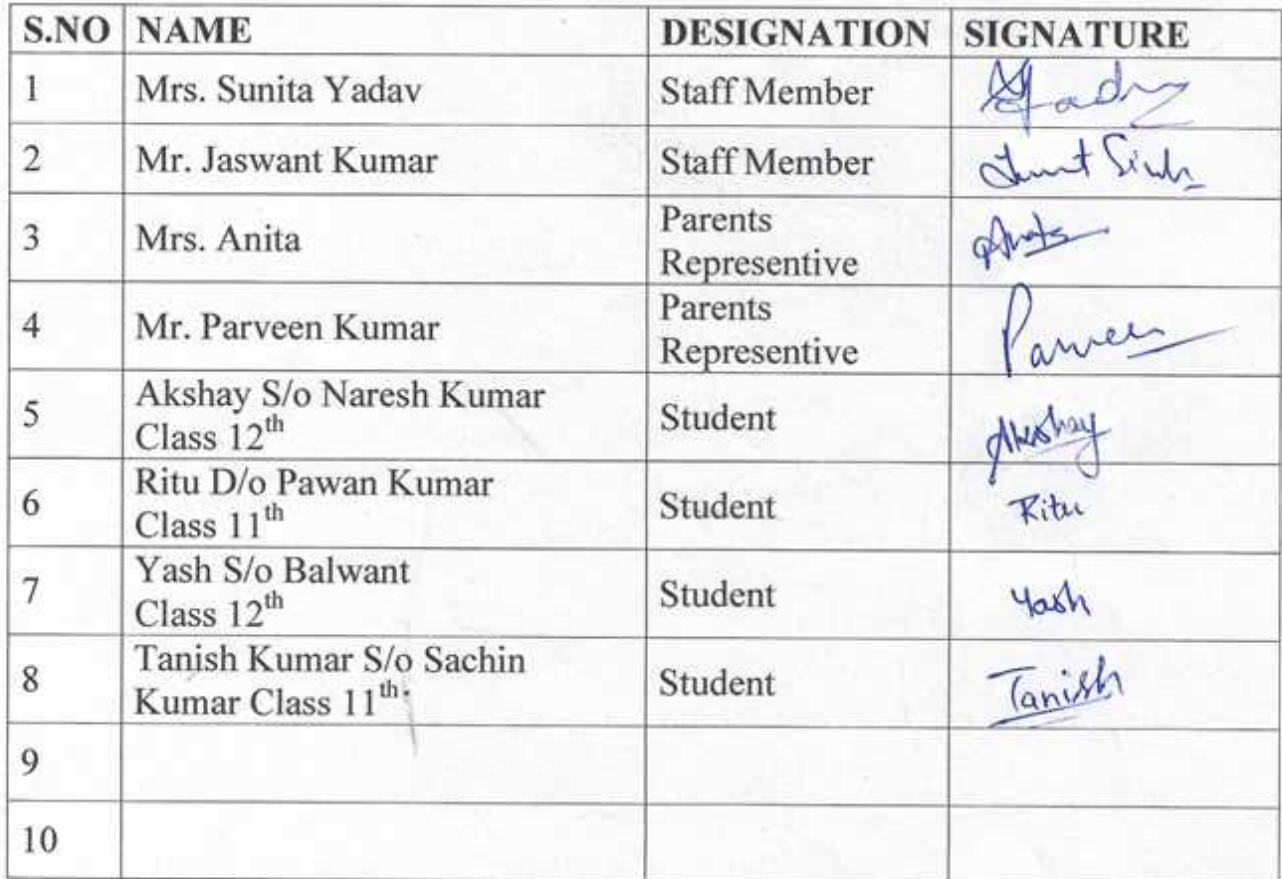 S.NO NAME DESIGNATION SIGNATURE
1 Mrs. Sunita Yadav Staff Member
2 Mr. Jaswant Kumar Staff Member
3 Mrs. Anita Parents
Representive
4 Mr. Parveen Kumar Parents
Representive Parveen
5 Akshay S/o Naresh Kumar
Class 12th Student Akshay
6 Ritu D/o Pawan Kumar
Class 11th Student Ritu
7 Yash S/o Balwant
Class 12th Student Yash
8 Tanish Kumar S/o Sachin
Kumar Class 11th. Student Tanish
9
10